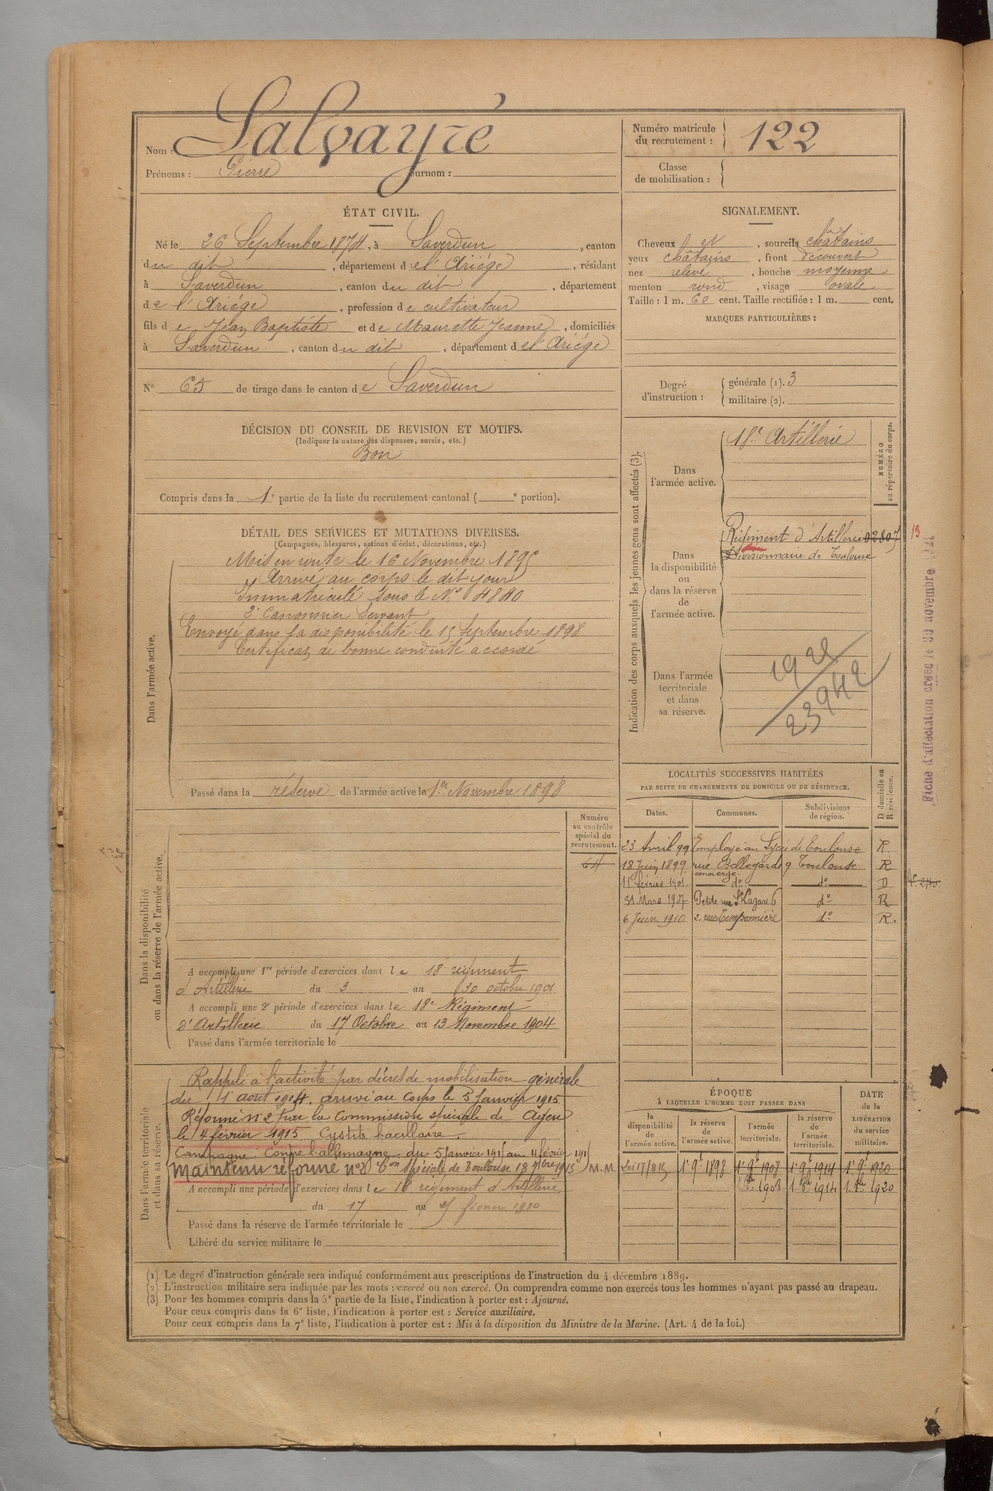 Nom : Salvayré
Prénoms : Pierre surnom :
Numéro matricule du recrutement : 122
Classe de mobilisation :
ÉTAT CIVIL.
Né le 26 Septembre 1874, à Saverdun, canton
du dit, département de l'Ariége, résidant
à Saverdun, canton du dit, département
de l'Ariége, profession de cultivateur
fils de Jean Baptiste et de Maurette Jeanne, domiciliés
à Saverdun, canton du dit, département de l'Ariége
N° 65 de tirage dans le canton de Saverdun
SIGNALEMENT.
Cheveux et, sourcils châtains
yeux châtains, front découvert
nez élevé, bouche moyenne
menton rond, visage ovale
Taille : 1 m. 60 cent. Taille rectifiée : 1 m. cent.
MARQUES PARTICULIÈRES :
Degré d'instruction : générale (1). 3
militaire (2).
DÉCISION DU CONSEIL DE REVISION ET MOTIFS.
(Indiquer la nature des dispenses, sursis, etc.)
Bon
Compris dans la 1e partie de la liste du recrutement cantonal ( e portion).
DÉTAIL DES SERVICES ET MUTATIONS DIVERSES.
(Campagnes, blessures, actions d'éclat, décorations, etc.)
Dans l'armée active.
Mis en route le 16 Novembre 1895
Arrivé au corps le dit jour
Immatriculé sous le N° 4840
2e Canonnier Servant
Envoyé dans la disponibilité le 15 Septembre 1898
Certificat de bonne conduite accordé
Passé dans la réserve de l'armée active le 1er Novembre 1898
Indication des corps auxquels les jeunes gens sont affectés (3).
NUMÉRO au répertoire du corps.
Dans l'armée active.
18e Artillerie
Dans la disponibilité ou dans la réserve de l'armée active.
Régiment d'Artillerie 02807
Divisionnaire de Toulouse
13
Dans l'armée territoriale et dans sa réserve.
1921
23942
Fiche d'affectation créée le 30 novembre 1921
LOCALITÉS SUCCESSIVES HABITÉES
PAR SUITE DE CHANGEMENTS DE DOMICILE OU DE RÉSIDENCE.
Dates. Communes. Subdivisions de région. D domicile ou R résidence.
23 Avril 99 Employé au Lycée de Toulouse R.
18 Juin 1899 rue Bellegarde 9 Toulouse R
11 février 1901 concierge do do D
31 Mars 1907 Petite rue St Lazare 6 do R
6 1910 2. do R.
Dans la disponibilité ou dans la réserve de l'armée active.
Numéro au contrôle spécial du recrutement.
64
A accompli une 1re période d'exercices dans le 18 régiment
d'Artillerie du 3 au 30 octobre 1901
A accompli une 2e période d'exercices dans le 18e Régiment
d'Artillerie du 17 Octobre au 13 Novembre 1904
Passé dans l'armée territoriale le
Dans l'armée territoriale et dans sa réserve.
Rappelé à l'activité par décret de mobilisation générale
du 1 août 1914. arrivé au Corps le 5 Janvier 1915
Réformé n°2 par la Commission spéciale de Agen
le 14 février 1915. Cystite bacillaire.
Campagne Contre l'allemagne du 5 Janvier 1915 au 14 février 191
Maintenu réformé n°2 Con spéciale de Toulouse 18 7bre 1915 M.M.
A accompli une période d'exercices dans le 18 régiment d'Artillerie
du 17 au février 1910
Passé dans la réserve de l'armée territoriale le
Libéré du service militaire le
ÉPOQUE
A LAQUELLE L'HOMME DOIT PASSER DANS
DATE de la LIBÉRATION du service militaire.
la disponibilité de l'armée active. la réserve de l'armée active. l'armée territoriale. la réserve de l'armée territoriale.
1er 9bre 1898 1er 9bre 1908 1er 9bre 1914 1er 9bre 1920
1908 1914 1920
(1) Le degré d'instruction générale sera indiqué conformément aux prescriptions de l'instruction du 4 décembre 1889.
(2) L'instruction militaire sera indiquée par les mots : exercé ou non exercé. On comprendra comme non exercés tous les hommes n'ayant pas passé au drapeau.
(3) Pour les hommes compris dans la 5e partie de la liste, l'indication à porter est : Ajourné.
Pour ceux compris dans la 6e liste, l'indication à porter est : Service auxiliaire.
Pour ceux compris dans la 7e liste, l'indication à porter est : Mis à la disposition du Ministre de la Marine. (Art. 4 de la loi.)